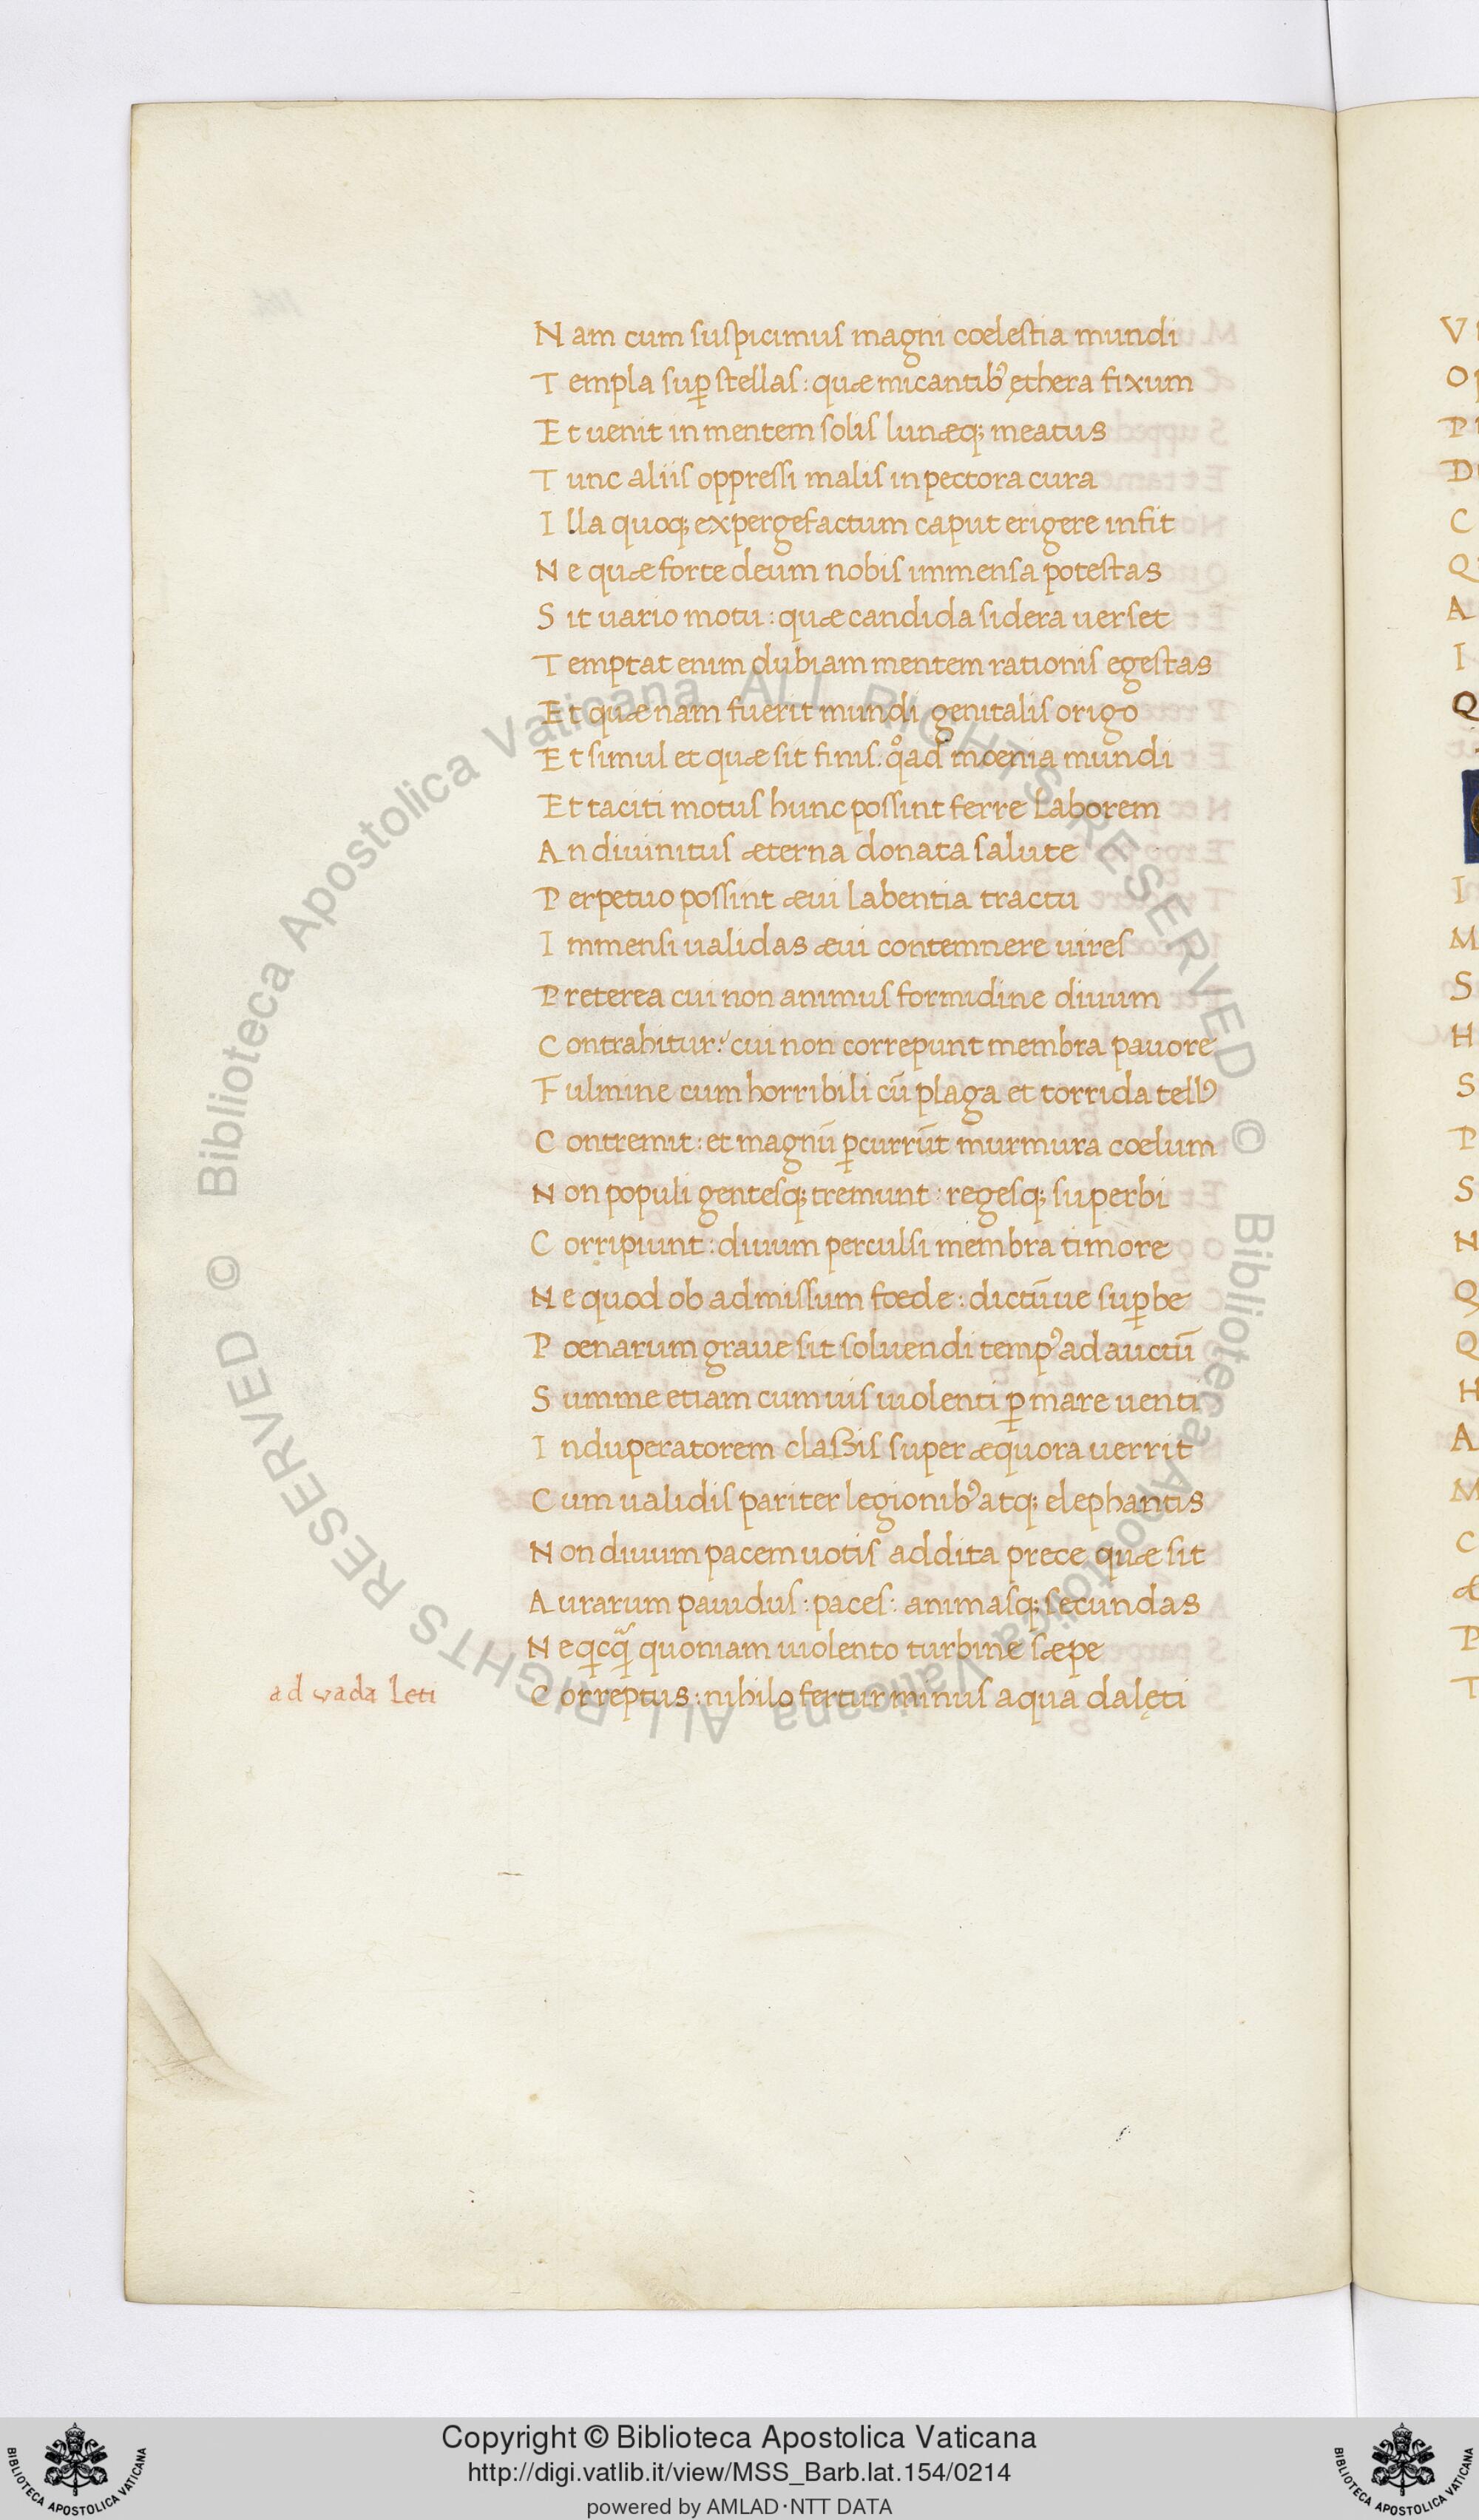 Nam cum suspicimus magni coelestia mundi
Templa sup̱ stellas: quæ micantibꝰ ęthera fixum
Et uenit in mentem solis lunæq; meatus
Tunc aliis oppressi malis in pectora cura
Illa quoq; expergefactum caput erigere infit
Ne quæ forte deum nobis immensa potestas
Sit uario motu: quæ candida sidera uerset
Temptat enim dubiam mentem rationis egestas
Et quæ nam fuerit mundi genitalis origo
Et simul et quæ sit finis. qͦad moenia mundi
Et taciti motus hunc possint ferre laborem
An diuinitus æterna donata salute
Perpetuo possint æui labentia tractu
Immensi ualidas æui contemnere uires
Preterea cui non animus formidine diuum
Contrahitur? cui non correpunt membra pauore
Fulmine cum horribili cū plaga et torrida tellꝰ
Contremit: et magnū ꝑcurrūt murmura coelum
Non populi gentesq; tremunt: regesq; superbi
Corripiunt: diuum perculsi membra timore
Ne quod ob admissum foede: dictūue suꝑbe
Poenarum graue sit soluendi tempꝰ ad auctū
Summe etiam cum uis uiolenti ꝑ mare uenti
Induperatorem classis super æquora uerrit
Cum ualidis pariter legionibꝰ atq; elephantis
Non diuum pacem uotis addita prece quæ sit
Aurarum pauidus: paces: animasq; secundas
quoniam uiolento turbine sæpe
ad vada Leti
Correptus: nihilo fertur minus aqua dalęti
V
P
D
C
Q
A
I
Q
I
M
S
H
S
P
S
N
Q
Q
H
A
M
C
æ
P
T
Copyright © Biblioteca Apostolica Vaticana
http://digi.vatlib.it/view/MSS_Barb.lat.154/0214
powered by AMLAD·NTT DATA
BIBLIOTECA APOSTOLICA VATICANA
BIBLIOTECA APOSTOLICA VATICANA
© Biblioteca Apostolica Vaticana ALL RIGHTS RESERVED © Biblioteca Apostolica Vaticana ALL RIGHTS RESERVED